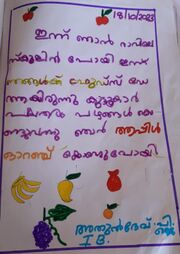 18/10/2023
ഇന്ന് ഞാൻ രാവിലെ
സ്കൂളിൽ പോയി ഇന്ന്
ഞങ്ങൾക്ക് ഫ്രൂട്ട്സ് ഡേ
ആയിരുന്നു കൂട്ടുകാർ
പലതരം പഴങ്ങൾ കൊ
ണ്ടുവന്നു ഞൻ ആപ്പിൾ
ഓറഞ്ച് കൊണ്ടുപോയി
അതുൻദേവ് . പി.
I B.